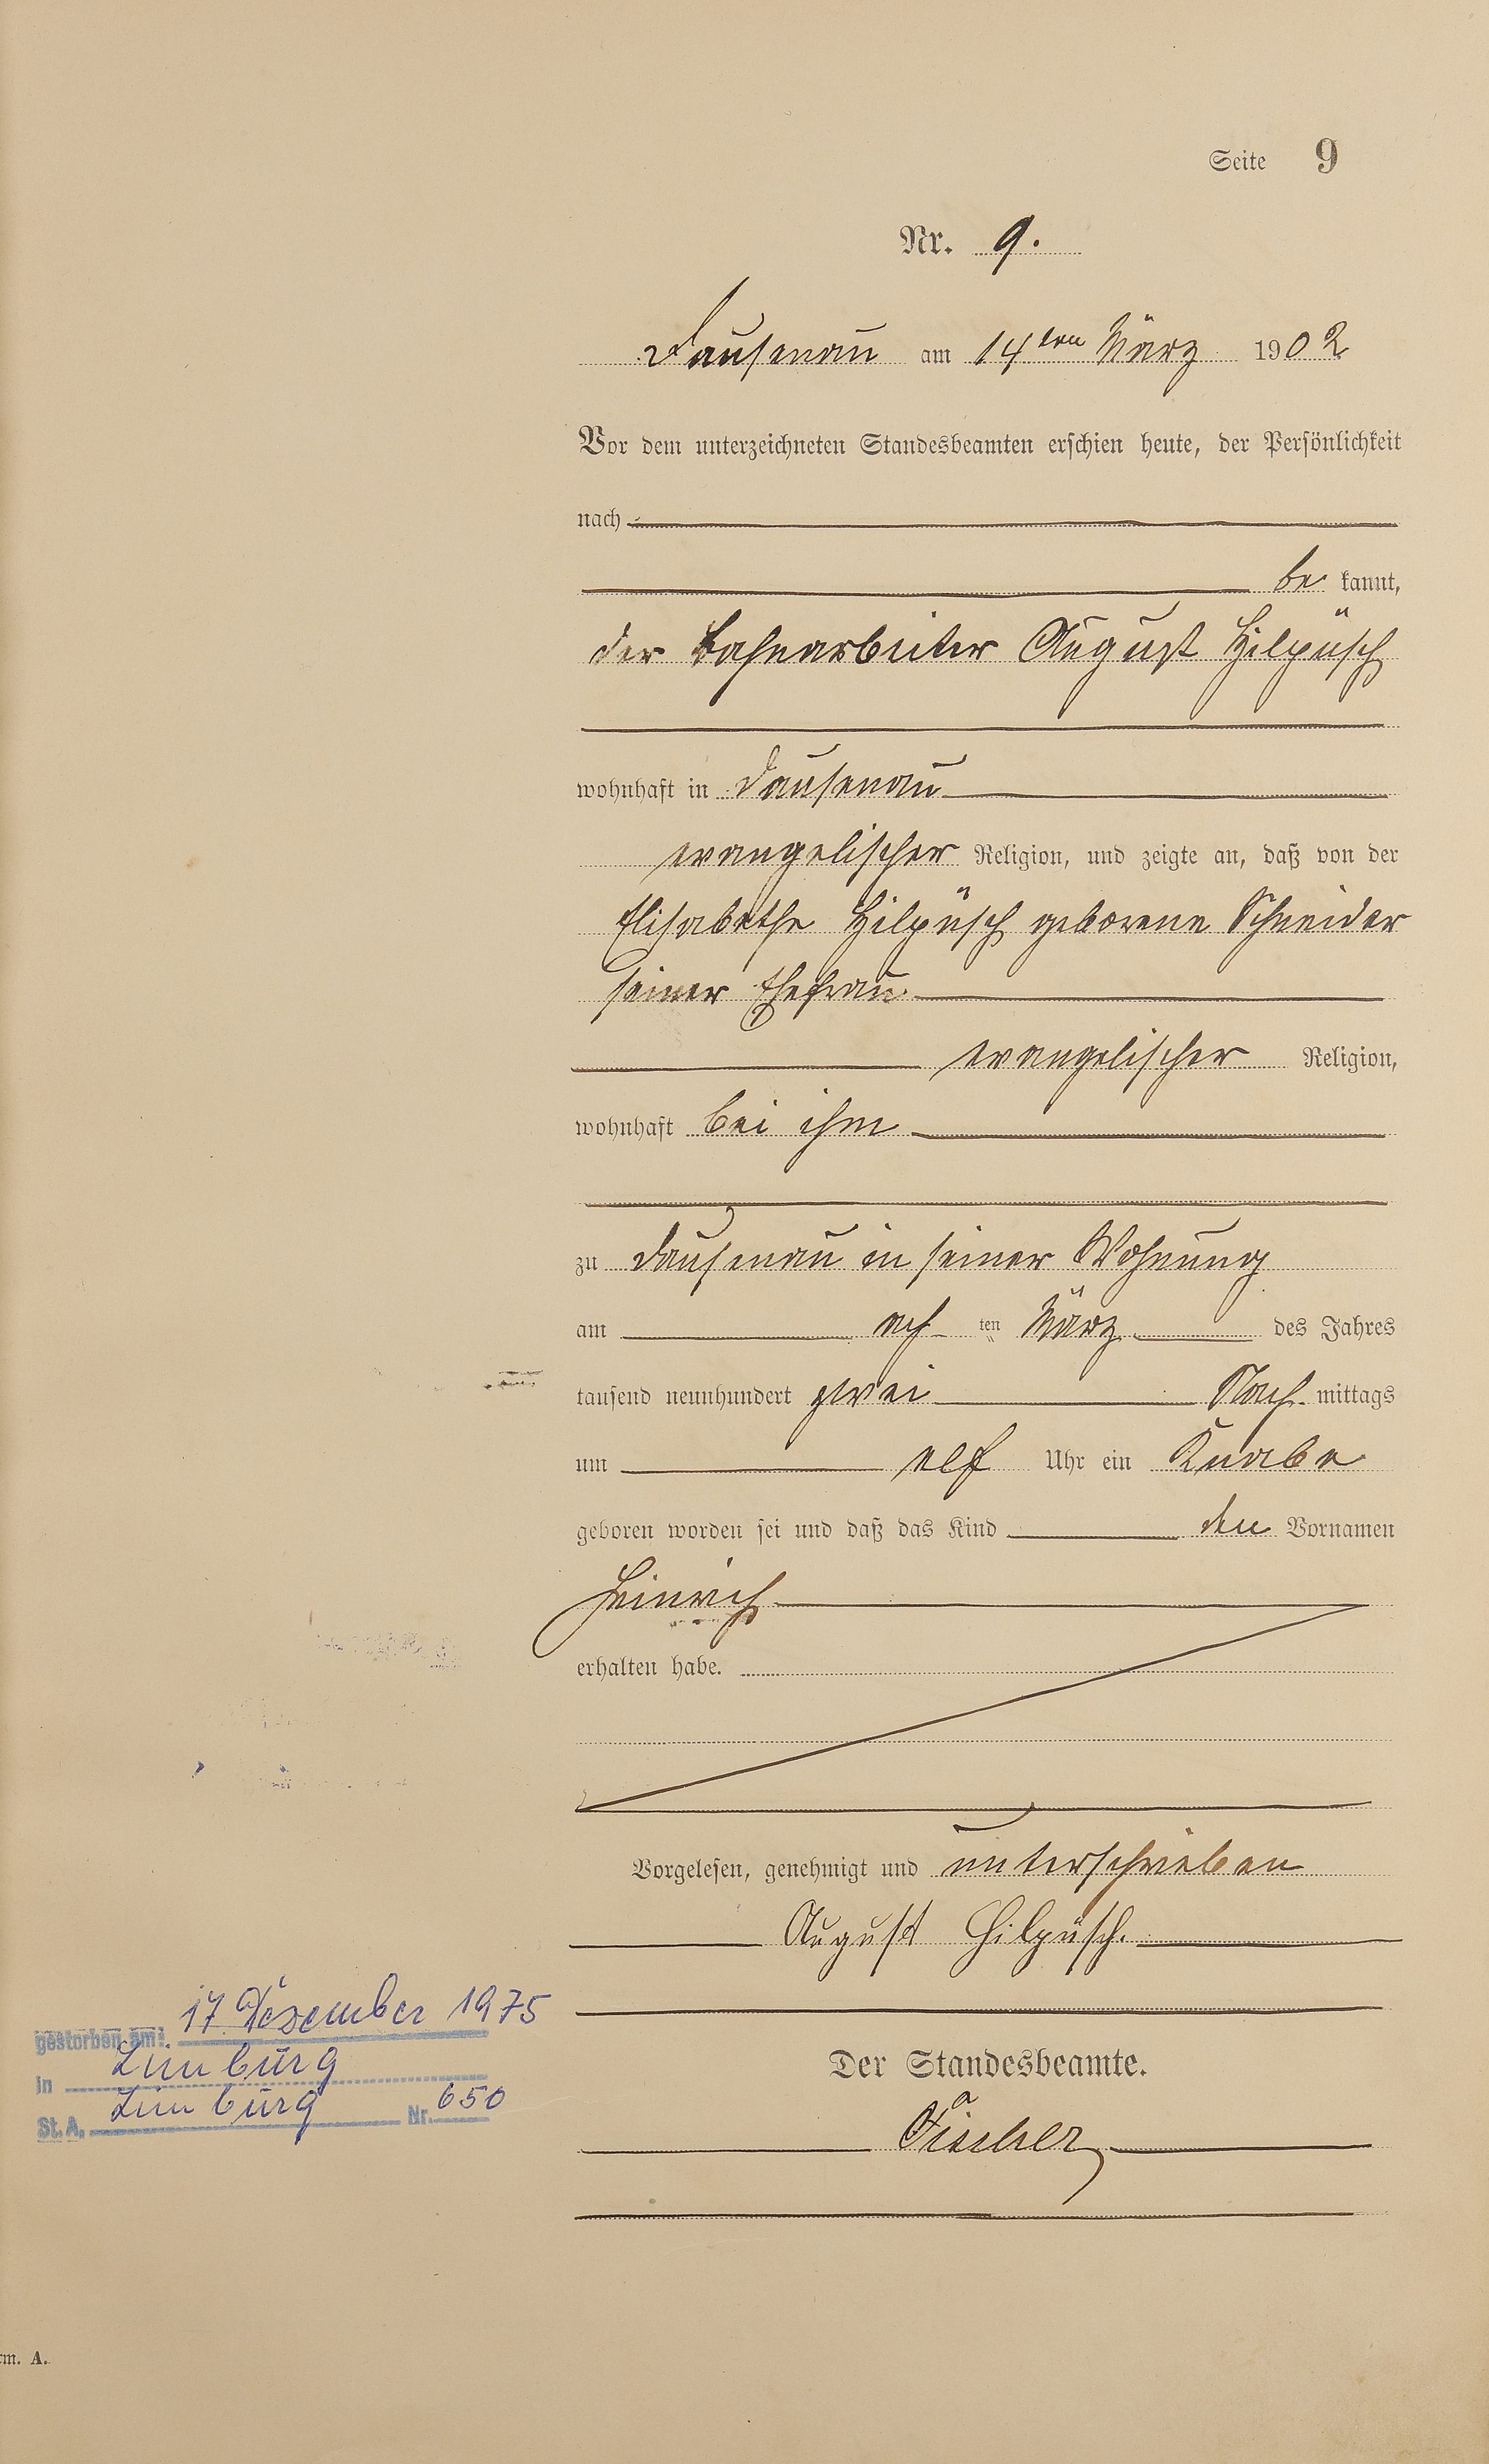 Seite 9
Nr. 9.
Dausenau am 14ten März 1902
Vor dem unterzeichneten Standesbeamten erschien heute, der Persönlichkeit
nach
be kannt,
der Bahnarbeiter August Hilpüsch
wohnhaft in Dausenau
evangelischer Religion, und zeigte an, daß von der
Elisabethe Hilpüsch geborene Schneider
seiner Ehefrau
evangelischer Religion,
wohnhaft bei ihm
zu Dausenau in seiner Wohnung
am ach ten März des Jahres
tausend neunhundert zwei Nach mittags
um elf Uhr ein Knabe
geboren worden sei und daß das Kind den Vornamen
Heinrich
erhalten habe.
Vorgelesen, genehmigt und unterschrieben
August Hilpüsch.
gestorben am: 17. Dezember 1975
in Limburg
St. A. Limburg Nr. 650
Der Standesbeamte.
Fischer
rm. A.